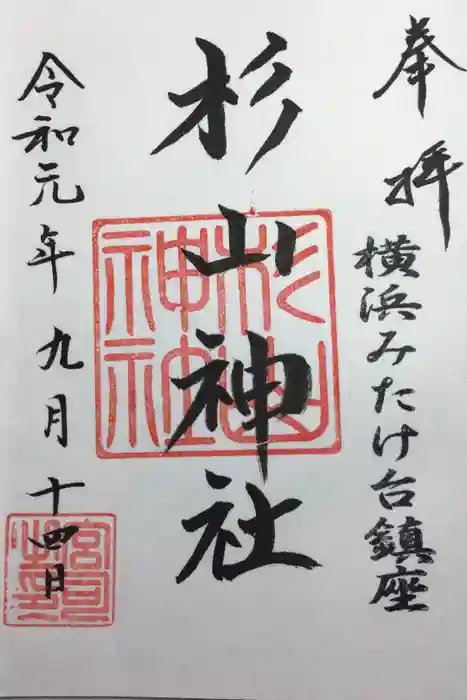 奉拝
横浜みたけ台鎮座
杉山神社
令和元年九月十四日
杉山神社
宮司之印